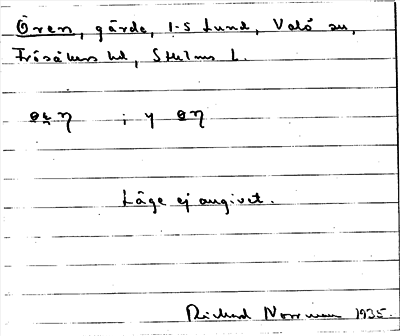 Ören, gärde, 1-5 Lund, Valö sn,
Frösåkers hd, Sthlms L.
; y
Läge ej angivet.
Richard Norrman 1935.